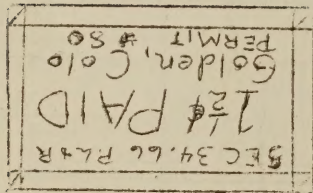 SEC 34.66 P.L.&R
1½¢ PAID
Golden, Colo
PERMIT #80